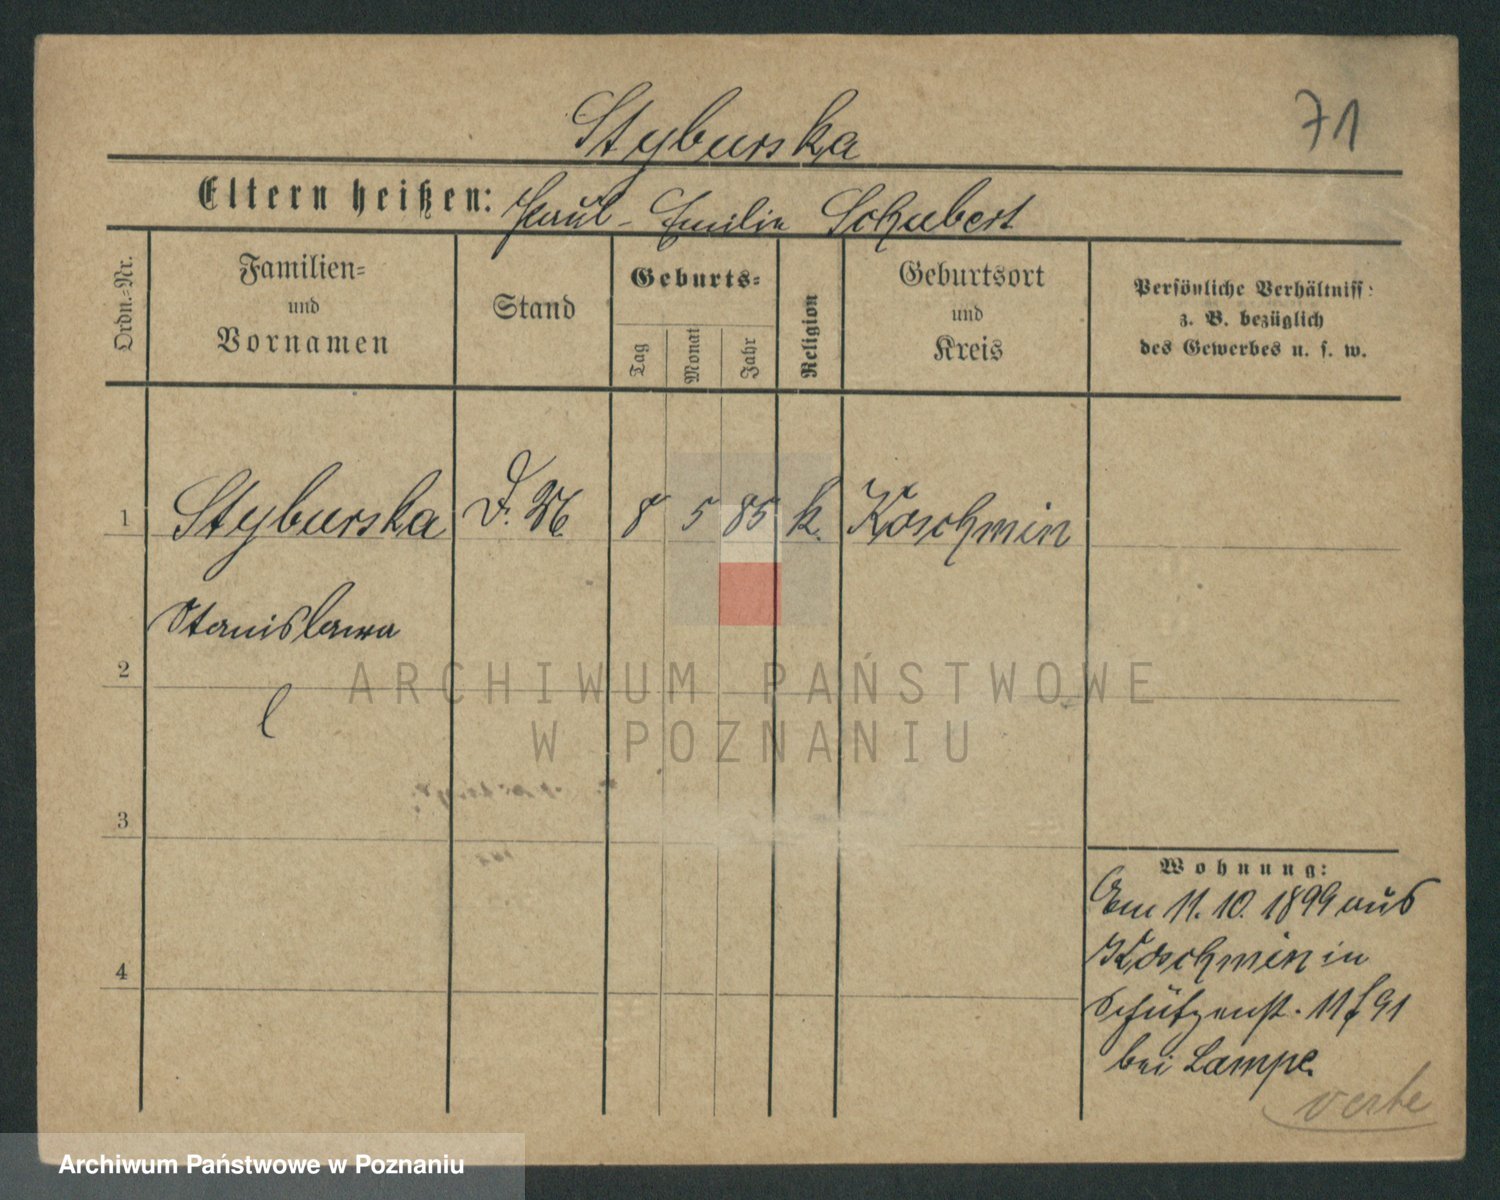 71
Styburska
Eltern heißen: Paul - Emilie Schubert
Ordn.-Nr.
Familien-
und
Vornamen
Stand
Geburts-
Tag
Monat
Jahr
Religion
Geburtsort
und
Kreis
Persönliche Verhältniss:
z. B. bezüglich
des Gewerbes u. s. w.
1 Styburska D. M 8 5 85 k. Koschmin
Stanislawa
2
3
4
Wohnung:
Am 11.10.1899 aus
Koschmin in
Schützenst. 11 f 91
bei Lampe.
verte
ARCHIWUM PAŃSTWOWE
W POZNANIU
Archiwum Państwowe w Poznaniu